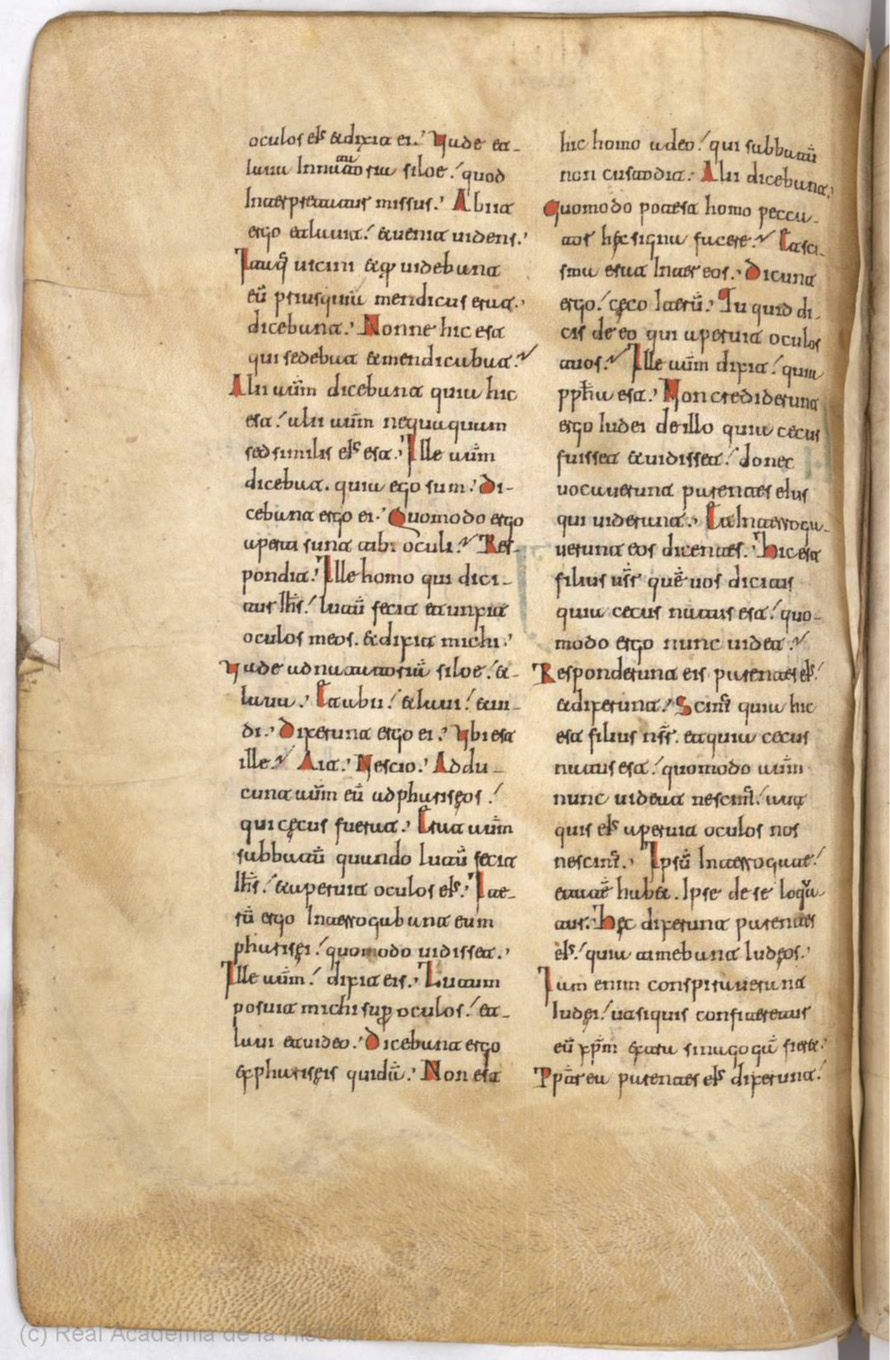 oculos eiˢ &dixit ei. Vade et-
laua In natatoria siloe. quod
Interpretatur missus. Abiit
ergo etlauit. &uenit uidens.
Itaq̄ uicini &qͥ uidebant
eū priusquā mendicus erat.
dicebant. Nonne hic est
qui sedebat &mendicabat.
Alii aūm dicebant quia hic
est. alii aūm nequaquam
sed similis eiˢ est. Ille aūm
dicebat. quia ego sum. Di-
cebant ergo ei. Quomodo ergo
aperti sunt tibi oculi. Res-
pondit. Ille homo qui dici-
tur Ihs̄. lutū fecit etunxit
oculos meos. &dixit michi.
Vade adnatatoriā siloe. &-
laua. Et abii. &laui. &ui-
di. Dixerunt ergo ei. Vbi est
ille. Ait. Nescio. Addu-
cunt aūm eū adphariseos.
qui cęcus fuerat. Erat aūm
sabbatū quando lutū fecit
Ihs̄. &aperuit oculos eiˢ. Ite-
rū ergo Interrogabant eum
pharisęi. quomodo uidisset.
Ille aūm. dixit eis. Lutum
posuit michi suꝑ oculos. et-
laui etuideo. Dicebant ergo
exphariseis quidā. Non est
hic homo adeo. qui sabbatū
non custodit. Alii dicebant.
Quomodo potest homo pecca-
tor hęc signa facere. Etscis-
ma erat Inter eos. Dicunt
ergo. cęco Iterū. Tu quid di-
cis de eo qui aperuit oculos
tuos. Ille aūm dixit. quia
pphta est. Non crediderunt
ergo Iudei deillo quia cecus
fuisset &uidisset. donec
uocauerunt parentes eius
qui uiderant. Et Interroga-
uerunt eos dicentes. Hicest
filius ūsr quē uos dicitis
quia cecus natus est. quo-
modo ergo nunc uidet.
Responderunt eis parentes eiˢ.
&dixerunt. Scimˢ quia hic
est filius n̄sr. etquia cecus
natus est. quomodo aūm
nunc uideat nescimˢ. autq̄
quis eiˢ aperuit oculos nos
nescimˢ. Ipsū Interrogate.
etatē habet. Ipse de se loqua-
tur. Hęc dixerunt parentes
eiˢ. quia timebant Iudęos.
Iam enim conspirauerunt
Iudęi. utsiquis confiteretur
eū xp̄m extra sinagogā fieret.
Pp̄terea parentes eiˢ dixerunt.